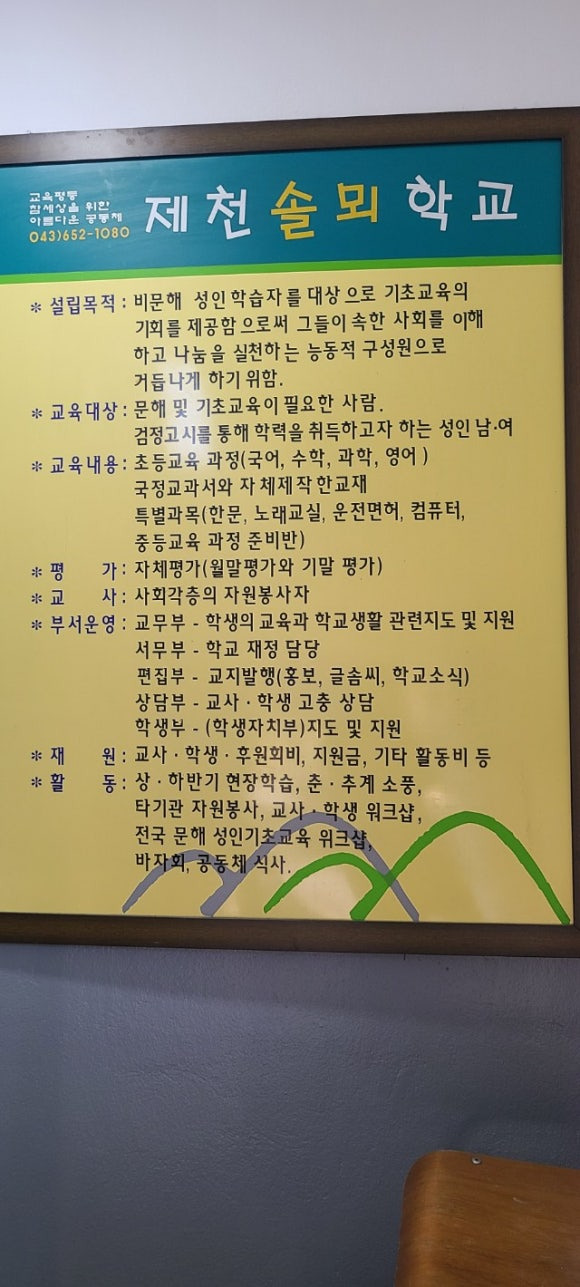 교육평등
참세상을 위한
아름다운 공동체
043)652-1080
제천솔뫼학교
* 설립목적 : 비문해 성인 학습자를 대상으로 기초교육의
기회를 제공함으로써 그들이 속한 사회를 이해
하고 나눔을 실천하는 능동적 구성원으로
거듭나게 하기 위함.
* 교육대상 : 문해 및 기초교육이 필요한 사람.
검정고시를 통해 학력을 취득하고자 하는 성인 남·여
* 교육내용 : 초등교육 과정(국어, 수학, 과학, 영어)
국정교과서와 자체제작한교재
특별과목(한문, 노래교실, 운전면허, 컴퓨터,
중등교육 과정 준비반)
* 평 가 : 자체평가(월말평가와 기말 평가)
* 교 사 : 사회각층의 자원봉사자
* 부서운영 : 교무부 - 학생의 교육과 학교생활 관련지도 및 지원
서무부 - 학교 재정 담당
편집부 - 교지발행(홍보, 글솜씨, 학교소식)
상담부 - 교사·학생 고충 상담
학생부 - (학생자치부)지도 및 지원
* 재 원 : 교사·학생·후원회비, 지원금, 기타 활동비 등
* 활 동 : 상·하반기 현장학습, 춘·추계 소풍,
타기관 자원봉사, 교사·학생 워크샵,
전국 문해 성인기초교육 워크샵,
바자회, 공동체 식사.